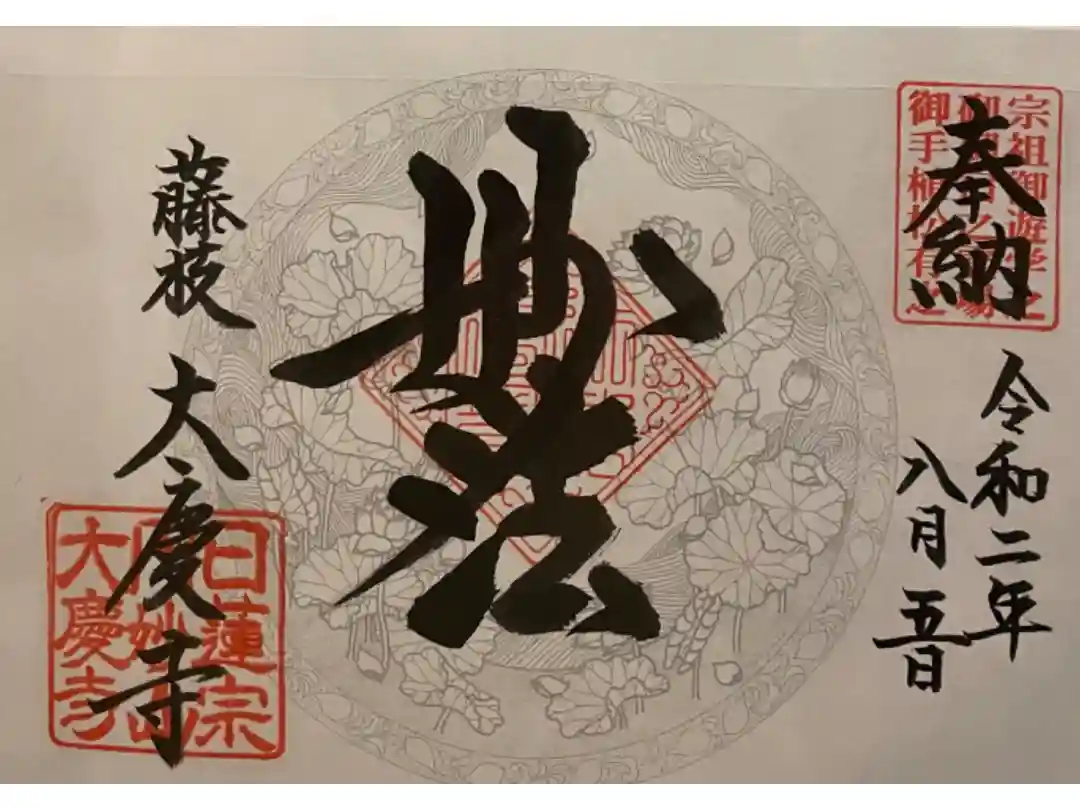 奉納
令和二年
八月五日
妙法
藤枝
大慶寺
宗祖御遊学之
御手植松有之
日蓮宗
大慶寺